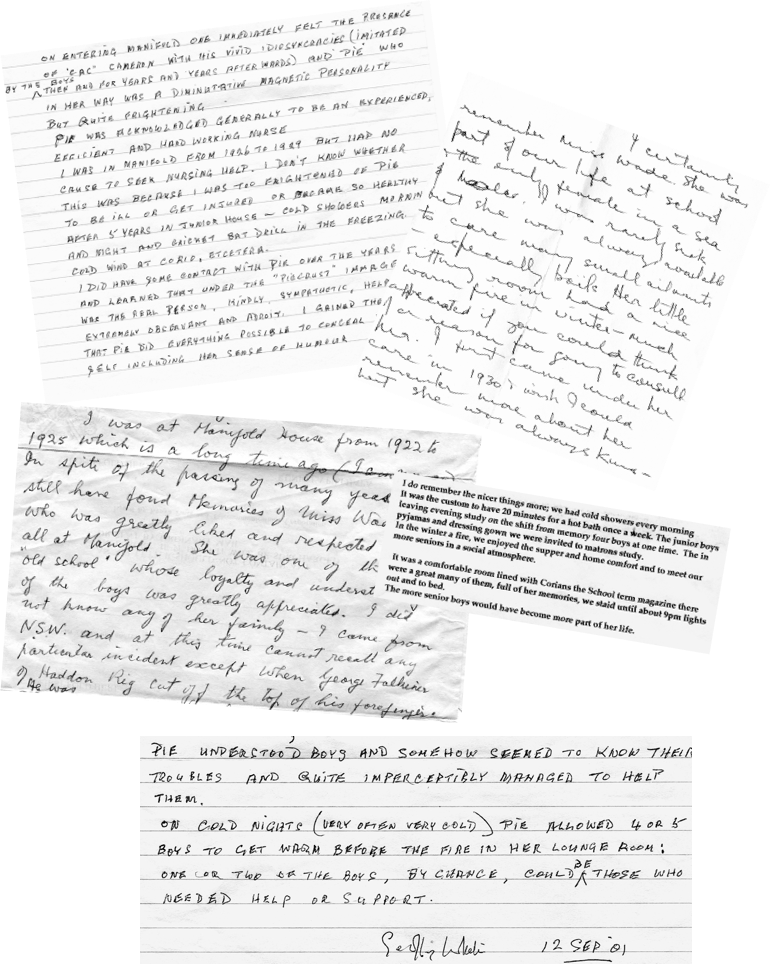 ON ENTERING MANIFOLD ONE IMMEDIATELY FELT THE PRESENCE
OF "CAC" CAMERON WITH HIS VIVID IDIOSYNCRACIES (IMITATED
BY THE BOYS THEN AND FOR YEARS AND YEARS AFTERWARDS) AND PIE WHO
IN HER WAY WAS A DIMINUTATIVE MAGNETIC PERSONALITY
BUT QUITE FRIGHTENING.
PIE WAS ACKNOWLADGED GENERALLY TO BE AN EXPERIENCED,
EFFICIENT AND HARD WORKING NURSE
I WAS IN MANIFOLD FROM 1926 TO 1929 BUT HAD NO
CAUSE TO SEEK NURSING HELP. I DON'T KNOW WHETHER
THIS WAS BECAUSE I WAS TOO FRIGHTENED OF PIE
TO BE ILL OR GET INJURED OR BECAME SO HEALTHY
AFTER 5 YEARS IN JUNIOR HOUSE - COLD SHOWERS MORNIN
AND NIGHT AND CRICKET BAT DRILL IN THE FREEZING
COLD WIND AT CORIO, ETCETERA.
I DID HAVE SOME CONTACT WITH PIE OVER THE YEARS
AND LEARNED THAT UNDER THE "PIECRUST" IMMAGE
WAS THE REAL PERSON, KINDLY, SYMPATHETIC, HELP
EXTREMELY OBSERVANT AND ADROIT. I GAINED THE
THAT PIE DID EVERYTHING POSSIBLE TO CONCEAL
SELF INCLUDING HER SENSE OF HUMOUR
I certainly
remember Miss Wade. She was
part of our life at school
& the only female in a sea
of males. I was rarely sick
but she was always available
to cure many small ailments
- especially boils. Her little
sitting room had a nice
warm fire in winter - much
appreciated if you could think
of a reason for going to consult
her. I first came under her
care in 1930. I wish I could
remember more about her
but she was always kind -
I was at Manifold House from 1922 to
1925 which is a long time ago (I am
In spite of the passing of many years
still have fond Memories of Miss Wad
who was greatly liked and respected
all at Manifold. She was one of th
"old school" whose loyalty and underst
of the boys was greatly appreciated. I did
not know any of her family - I came from
N.S.W. and at this time cannot recall any
particular incident except when George Falkiner
of Haddon Rig cut off the top of his forefinger.
He was
I do remember the nicer things more; we had cold showers every morning
It was the custom to have 20 minutes for a hot bath once a week. The junior boys
leaving evening study on the shift from memory four boys at one time. The in
pyjamas and dressing gown we were invited to matrons study.
In the winter a fire, we enjoyed the supper and home comfort and to meet our
more seniors in a social atmosphere.
It was a comfortable room lined with Corians the School term magazine there
were a great many of them, full of her memories, we staid until about 9pm lights
out and to bed.
The more senior boys would have become more part of her life.
PIE UNDERSTOOD BOYS AND SOMEHOW SEEMED TO KNOW THEIR
TROUBLES AND QUITE IMPERCEPTIBLY MANAGED TO HELP
THEM.
ON COLD NIGHTS (VERY OFTEN VERY COLD) PIE ALLOWED 4 OR 5
BOYS TO GET WARM BEFORE THE FIRE IN HER LOUNGE ROOM;
ONE OR TWO OF THE BOYS, BY CHANCE, COULD BE THOSE WHO
NEEDED HELP OR SUPPORT.
12 SEP '01